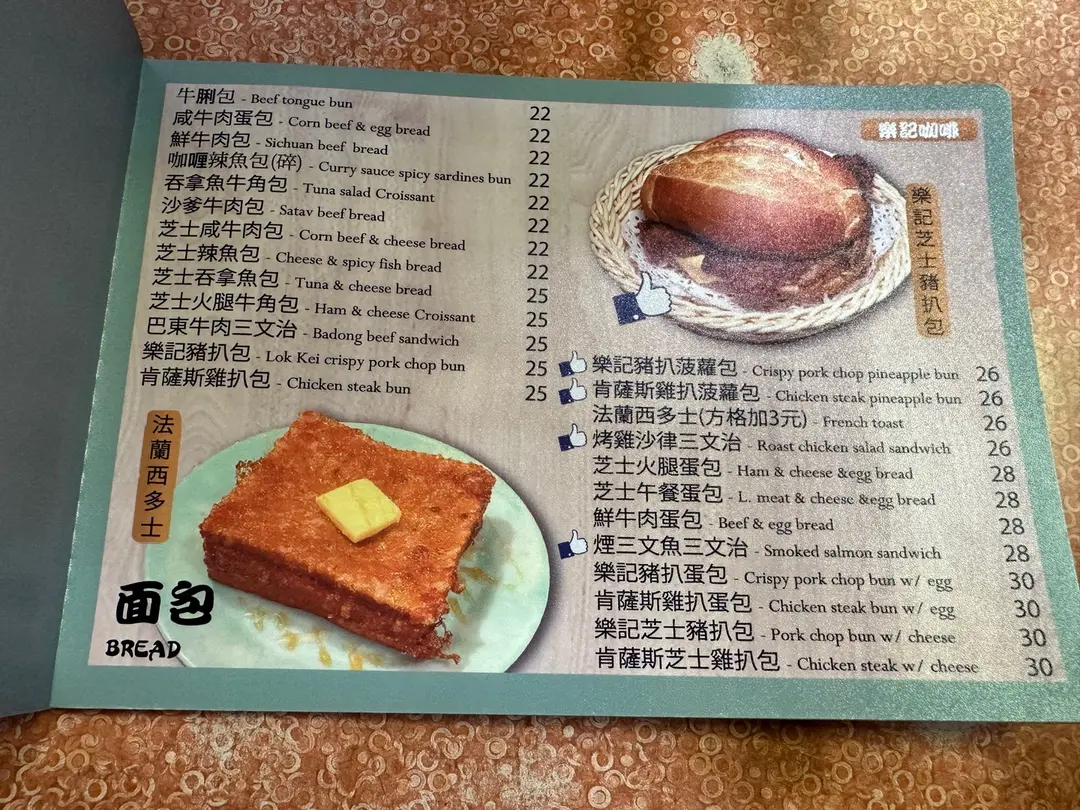 牛脷包 - Beef tongue bun 22
咸牛肉蛋包 - Corn beef & egg bread 22
鮮牛肉包 - Sichuan beef bread 22
咖喱辣魚包(碎) - Curry sauce spicy sardines bun 22
吞拿魚牛角包 - Tuna salad Croissant 22
沙爹牛肉包 - Satav beef bread 22
芝士咸牛肉包 - Corn beef & cheese bread 22
芝士辣魚包 - Cheese & spicy fish bread 22
芝士吞拿魚包 - Tuna & cheese bread 25
芝士火腿牛角包 - Ham & cheese Croissant 25
巴東牛肉三文治 - Badong beef sandwich 25
樂記豬扒包 - Lok Kei crispy pork chop bun 25
肯薩斯雞扒包 - Chicken steak bun 25
法蘭西多士
面包
BREAD
樂記咖啡
樂記芝士豬扒包
樂記豬扒菠蘿包 - Crispy pork chop pineapple bun 26
肯薩斯雞扒菠蘿包 - Chicken steak pineapple bun 26
法蘭西多士(方格加3元) - French toast 26
烤雞沙律三文治 - Roast chicken salad sandwich 26
芝士火腿蛋包 - Ham & cheese &egg bread 28
芝士午餐蛋包 - L. meat & cheese &egg bread 28
鮮牛肉蛋包 - Beef & egg bread 28
煙三文魚三文治 - Smoked salmon sandwich 28
樂記豬扒蛋包 - Crispy pork chop bun w/ egg 30
肯薩斯雞扒蛋包 - Chicken steak bun w/ egg 30
樂記芝士豬扒包 - Pork chop bun w/ cheese 30
肯薩斯芝士雞扒包 - Chicken steak w/ cheese 30